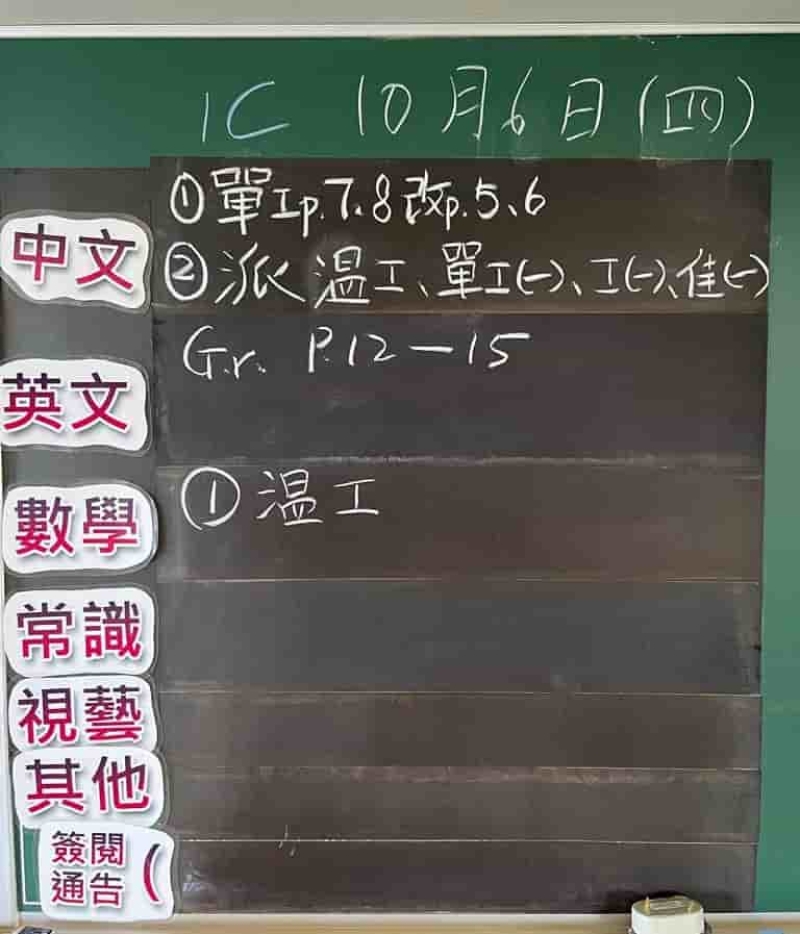 1C 10月6日(四)
中文
①單工p.7、8改p.5、6
②派溫工、單工(一)、工(一)、佳(一)
英文
Gr. P.12—15
數學
①溫工
常識
視藝
其他
簽閱
通告 (